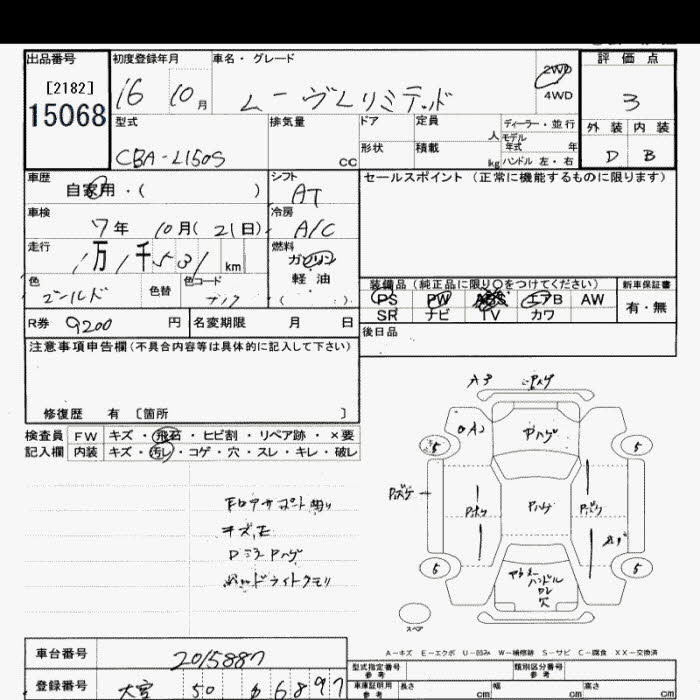 出品番号 初度登録年月 車名・グレード 2WD 4WD 評価点
[2182]
15068 16 10月 ムーヴLリミテッド 3
型式 排気量 cc ドア 定員 人 ディーラー・並行 外装 内装
CBA-L150S 形状 積載 kg モデル年式 年 ハンドル 左・右 D B
車歴 自家用・( ) シフト AT セールスポイント(正常に機能するものに限ります)
車検 7年 10月(21日) 冷房 A/C
走行 1万1千531km 燃料 ガソリン・軽油 ( )
色 ゴールド 色替 色コード
装備品(純正品に限り○をつけてください) 新車保証書
PS PW ABS エアB AW 有・無
SR ナビ TV カワ
R券 9200円 名変期限 月 日 後日品
注意事項申告欄(不具合内容等は具体的に記入して下さい)
修復歴 有 〔箇所 〕
検査員記入欄 FW キズ・飛石・ヒビ割・リペア跡・×要
内装 キズ・汚レ・コゲ・穴・スレ・キレ・破レ
A3 Pハゲ
Pハゲ
5 5
Pボケ Pボケ Pハゲ Pボケ
キズ,E
DミラーPハゲ
ヘッドライトクモリ
5 5
ハンドル
穴
スペア
A-キズ E-エクボ U-凹み W-補修跡 S-サビ C-腐食 XX-交換済
車台番号 2015887
型式指定番号 参考 類別区分番号 参考
登録番号 大宮 50 6897
車庫証明用 参考 長さ cm 幅 cm 高さ cm